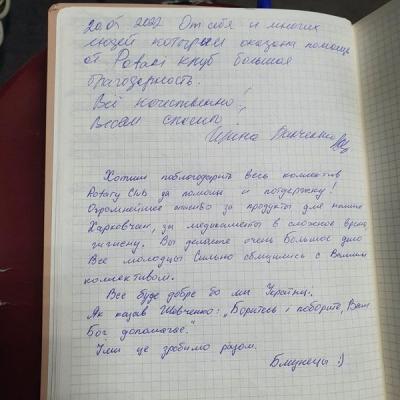 20.05 2022 От себя и многих
людей которым оказана помощь
от Ротари клуб большая
благодарность.
Всё качественно!
Всем спасибо!
Ирина
Хотим поблагодарить весь коллектив
Rotary Club за помощь и поддержку!
Огромнейшее спасибо за продукты для наших
Харковчан, за медикаменты в сложное время,
гигиену. Вы делаете очень большое дело
Все молодцы! Сильно сблизились с Вашим
коллективом.
Все буде добре бо ми Українці.
Як казав Шевченко: „Боритесь і поборите, Вам
Бог допомагає."
І ми це зробимо разом.
:)